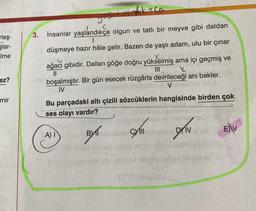 3. İnsanlar yaşlandıkça olgun ve tatlı bir meyve gibi daldan
I
düşmeye hazır hâle gelir. Bazen de yaşlı adam, ulu bir çınar
ağacı gibidir. Dalları göğe doğru yükselmiş ama içi geçmiş ve
II III
boşalmıştır. Bir gün esecek rüzgârla devrileceği anı bekler.
IV V
Bu parçadaki altı çizili sözcüklerin hangisinde birden çok
ses olayı vardır?
A) I B) II C) III D) IV E) V
ez?
mir